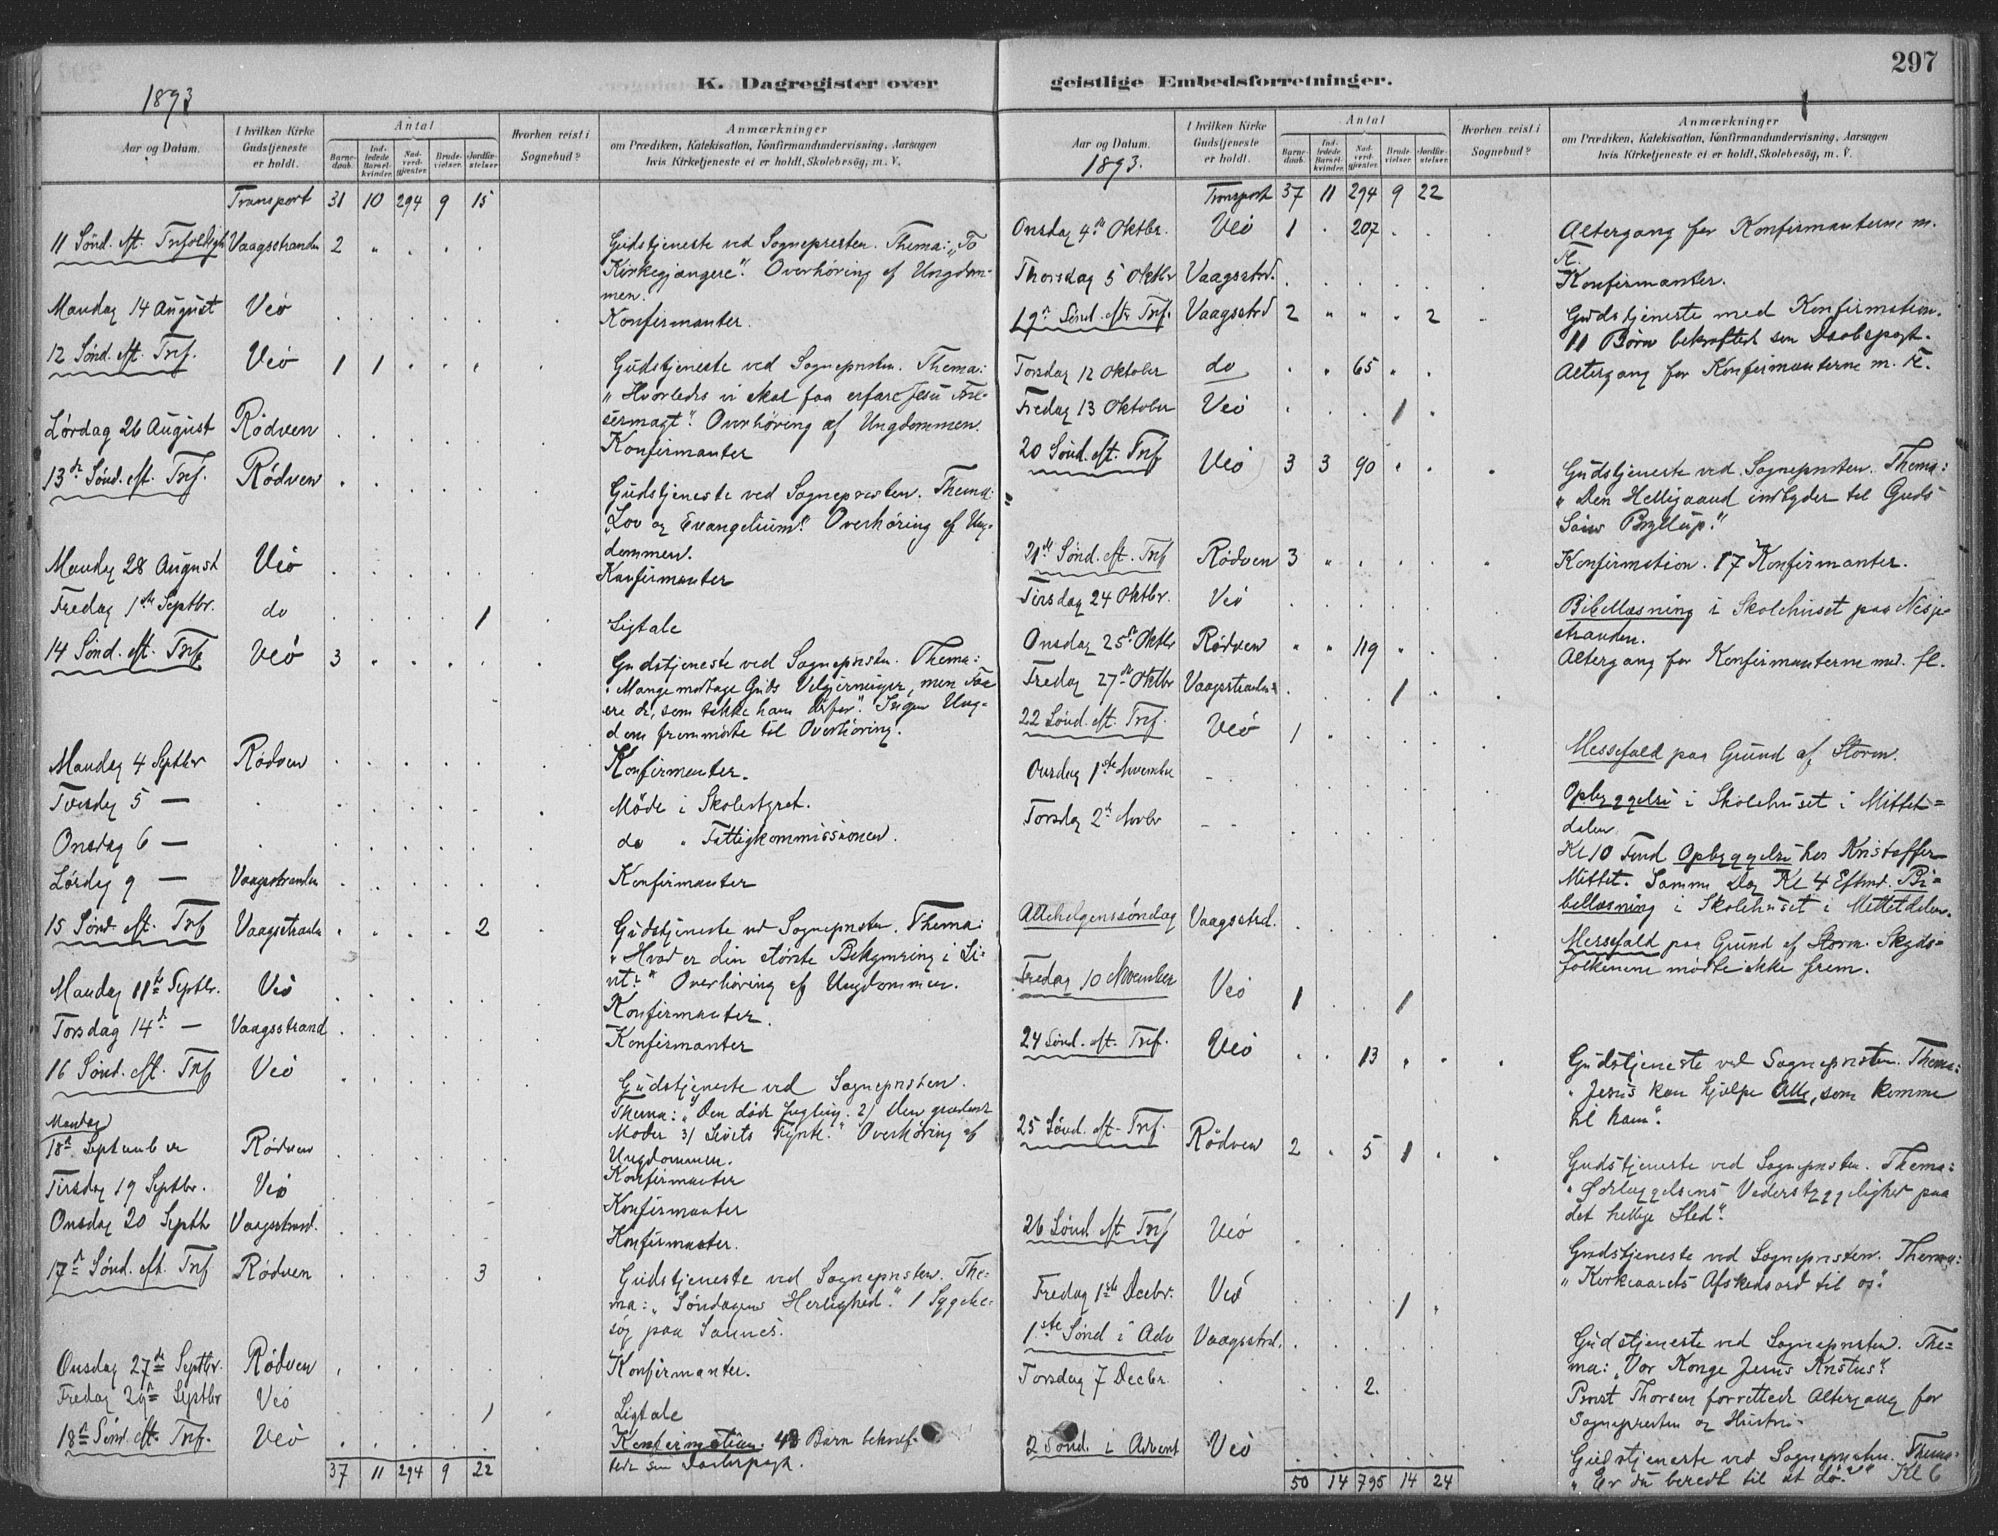 297
K. Dagregister over geistlige Embedsforretninger.
1893
Aar og Datum.
I hvilken Kirke Gudstjeneste er holdt.
Antal
Barnedaab.
Indledede Barselkvinder.
Nadverdgjester.
Brudevielser.
Jordfæstelser.
Hvorhen reist i Sognebud?
Anmærkninger
om Prædiken, Katekisation, Konfirmandundervisning, Aarsagen
hvis Kirketjeneste ei er holdt, Skolebesög, m. V.
Transport 31 10 294 9 15
11 Sønd. eft. Trefoldigh Vaagstranden 2 " . . . Gudstjeneste ved Sognepresten. Thema: "To
Kirkegjængere". Overhöring af Ungdom-
men.
Mandag 14 August Veö Konfirmanter.
12 Sönd. eft. Tref. Veö 1 1 . . . Gudstjeneste ved Sognepresten. Thema:
"Hvorledes vi skal faa erfare Jesu Frel-
sermagt". Overhöring af Ungdommen.
Lördag 26 August Rödven Konfirmanter
13de Sönd. eft. Tref. Rödven Gudstjeneste ved Sognepresten. Thema:
"Lov og Evangelium". Overhöring af Ung-
dommen.
Mandag 28 August Veö Konfirmanter
Fredag 1ste Septbr. do 1 Ligtale
14 Sönd. eft. Tref. Veö 3 . . . . Gudstjeneste ved Sognepresten. Thema:
"Mange modtage Guds Velgjerninger, men Faa
ere de, som takke ham derfor". Ingen Ung-
dom fremmödte til Overhöring.
Mandag 4 Septbr Rödven Konfirmanter.
Tirsdag 5 — Möde i Skolestyret.
Onsdag 6 — do " Fattigkommissionen.
Lördag 9 — Vaagstranden Konfirmanter
15 Sönd. eft. Tref Vaagstranden 2 Gudstjeneste ved Sognepresten. Thema:
"Hvad er din störste Bekymring i Li-
vet?" Overhöring af Ungdommen.
Mandag 11te Septbr. Veö Konfirmanter.
Torsdag 14de — Vaagsstrand Konfirmanter
16 Sönd. eft. Tref Veö Gudstjeneste ved Sognepresten.
Thema: "1) Den döde Yngling. 2) Den grædende
Moder 3) Livets Fyrste." Overhöring af
Ungdommen.
Mandag
18de September Rödven Konfirmanter
Tirsdag 19 Septbr. Veö Konfirmanter
Onsdag 20 Septbr Vaagsstrand. Konfirmanter.
17de Sönd. eft. Tref Rödven 3 Gudstjeneste ved Sognepresten. The-
ma: "Söndagens Herlighed." 1 Sygebe-
søg paa Sannes.
Onsdag 27de Septbr. Rödven Konfirmanter.
Fredag 29de Septbr Veö 1 Ligtale
18de Sönd. eft. Tref. Veö Konfirmation. 48 Börn bekræf-
tede sin Daabspagt.
37 11 294 9 22
Aar og Datum.
1893.
I hvilken Kirke Gudstjeneste er holdt.
Antal
Barnedaab.
Indledede Barselkvinder.
Nadverdgjester.
Brudevielser.
Jordfæstelser.
Hvorhen reist i Sognebud?
Anmærkninger
om Prædiken, Katekisation, Konfirmandundervisning, Aarsagen
hvis Kirketjeneste ei er holdt, Skolebesög, m. V.
Transport 37 11 294 9 22
Onsdag 4de Oktbr. Veö 1 . 207 . . Altergang for Konfirmanterne m.
Fl.
Thorsdag 5 Oktbr Vaagsstrd. Konfirmanter.
19de Sönd. eft. Tref. Vaagsstrd 2 " " . 2 Gudstjeneste med Konfirmation.
11 Börn bekræfted sin Daabspagt.
Torsdag 12 Oktober do . " 65 " . Altergang for Konfirmanterne m. Fl.
Fredag 13 Oktober Veö 1
20 Sönd. eft. Tref Veö 3 3 90 . . Gudstjeneste ved Sognepresten. Thema:
"Den Helligaand indbyder til Guds
Söns Bryllup."
21de Sönd. eft. Tref Rödven 3 Konfirmation. 17 Konfirmanter.
Tirsdag 24 Oktbr. Veö Bibellæsning i Skolehuset paa Nesje-
stranden.
Onsdag 25de Oktbr Rödven " " 119 " . Altergang for Konfirmanterne med fl.
Fredag 27de Oktbr Vaagsstranden 1
22 Sönd. eft. Tref. Veö 1 Messefald paa Grund af Storm.
Onsdag 1ste November - - Opbyggelse i Skolehuset i Mittet-
dalen.
Torsdag 2de Novbr - - Kl 10 Form Opbyggelse hos Kristoffer
Mittet. Samme Dag Kl 4 Efterm. Bi-
bellæsning i Skolehuset i Mittetdalen.
Allehelgenssöndag Vaagsstrd. Messefald paa Grund af Storm. Skyds-
folkenene mödte ikke frem.
Fredag 10 November Veö 1 1
24 Sönd. eft. Tref. Veö . . 13 . . Gudstjeneste ved Sognepresten. Thema:
"Jesus kan hjælpe Alle, som komme
til ham".
25 Sönd. eft. Tref. Rödven 2 . 5 1 . Gudstjeneste ved Sognepresten. Thema:
"Ödelæggelsens Vederstyggelighed paa
det hellige Sted".
26 Sönd. eft Tref Veö Gudstjeneste ved Sognepresten. Thema:
"Kirkeaarets Afskedsord til os".
Fredag 1ste Decbr. Veö 1
1ste Sönd i Adv Vaagsstrd. Gudstjeneste ved Sognepresten. The-
ma: "Vor Konge Jesus Kristus".
Torsdag 7 Decbr. 2. Provst Thorsen forrettede Altergang for
Sognepresten og Hustru.
2 Sönd. i Advent Veö Gudstjeneste ved Sognepresten. Thema:
"Er du beredt til at dö?" Kl 6
50 14 795 14 24